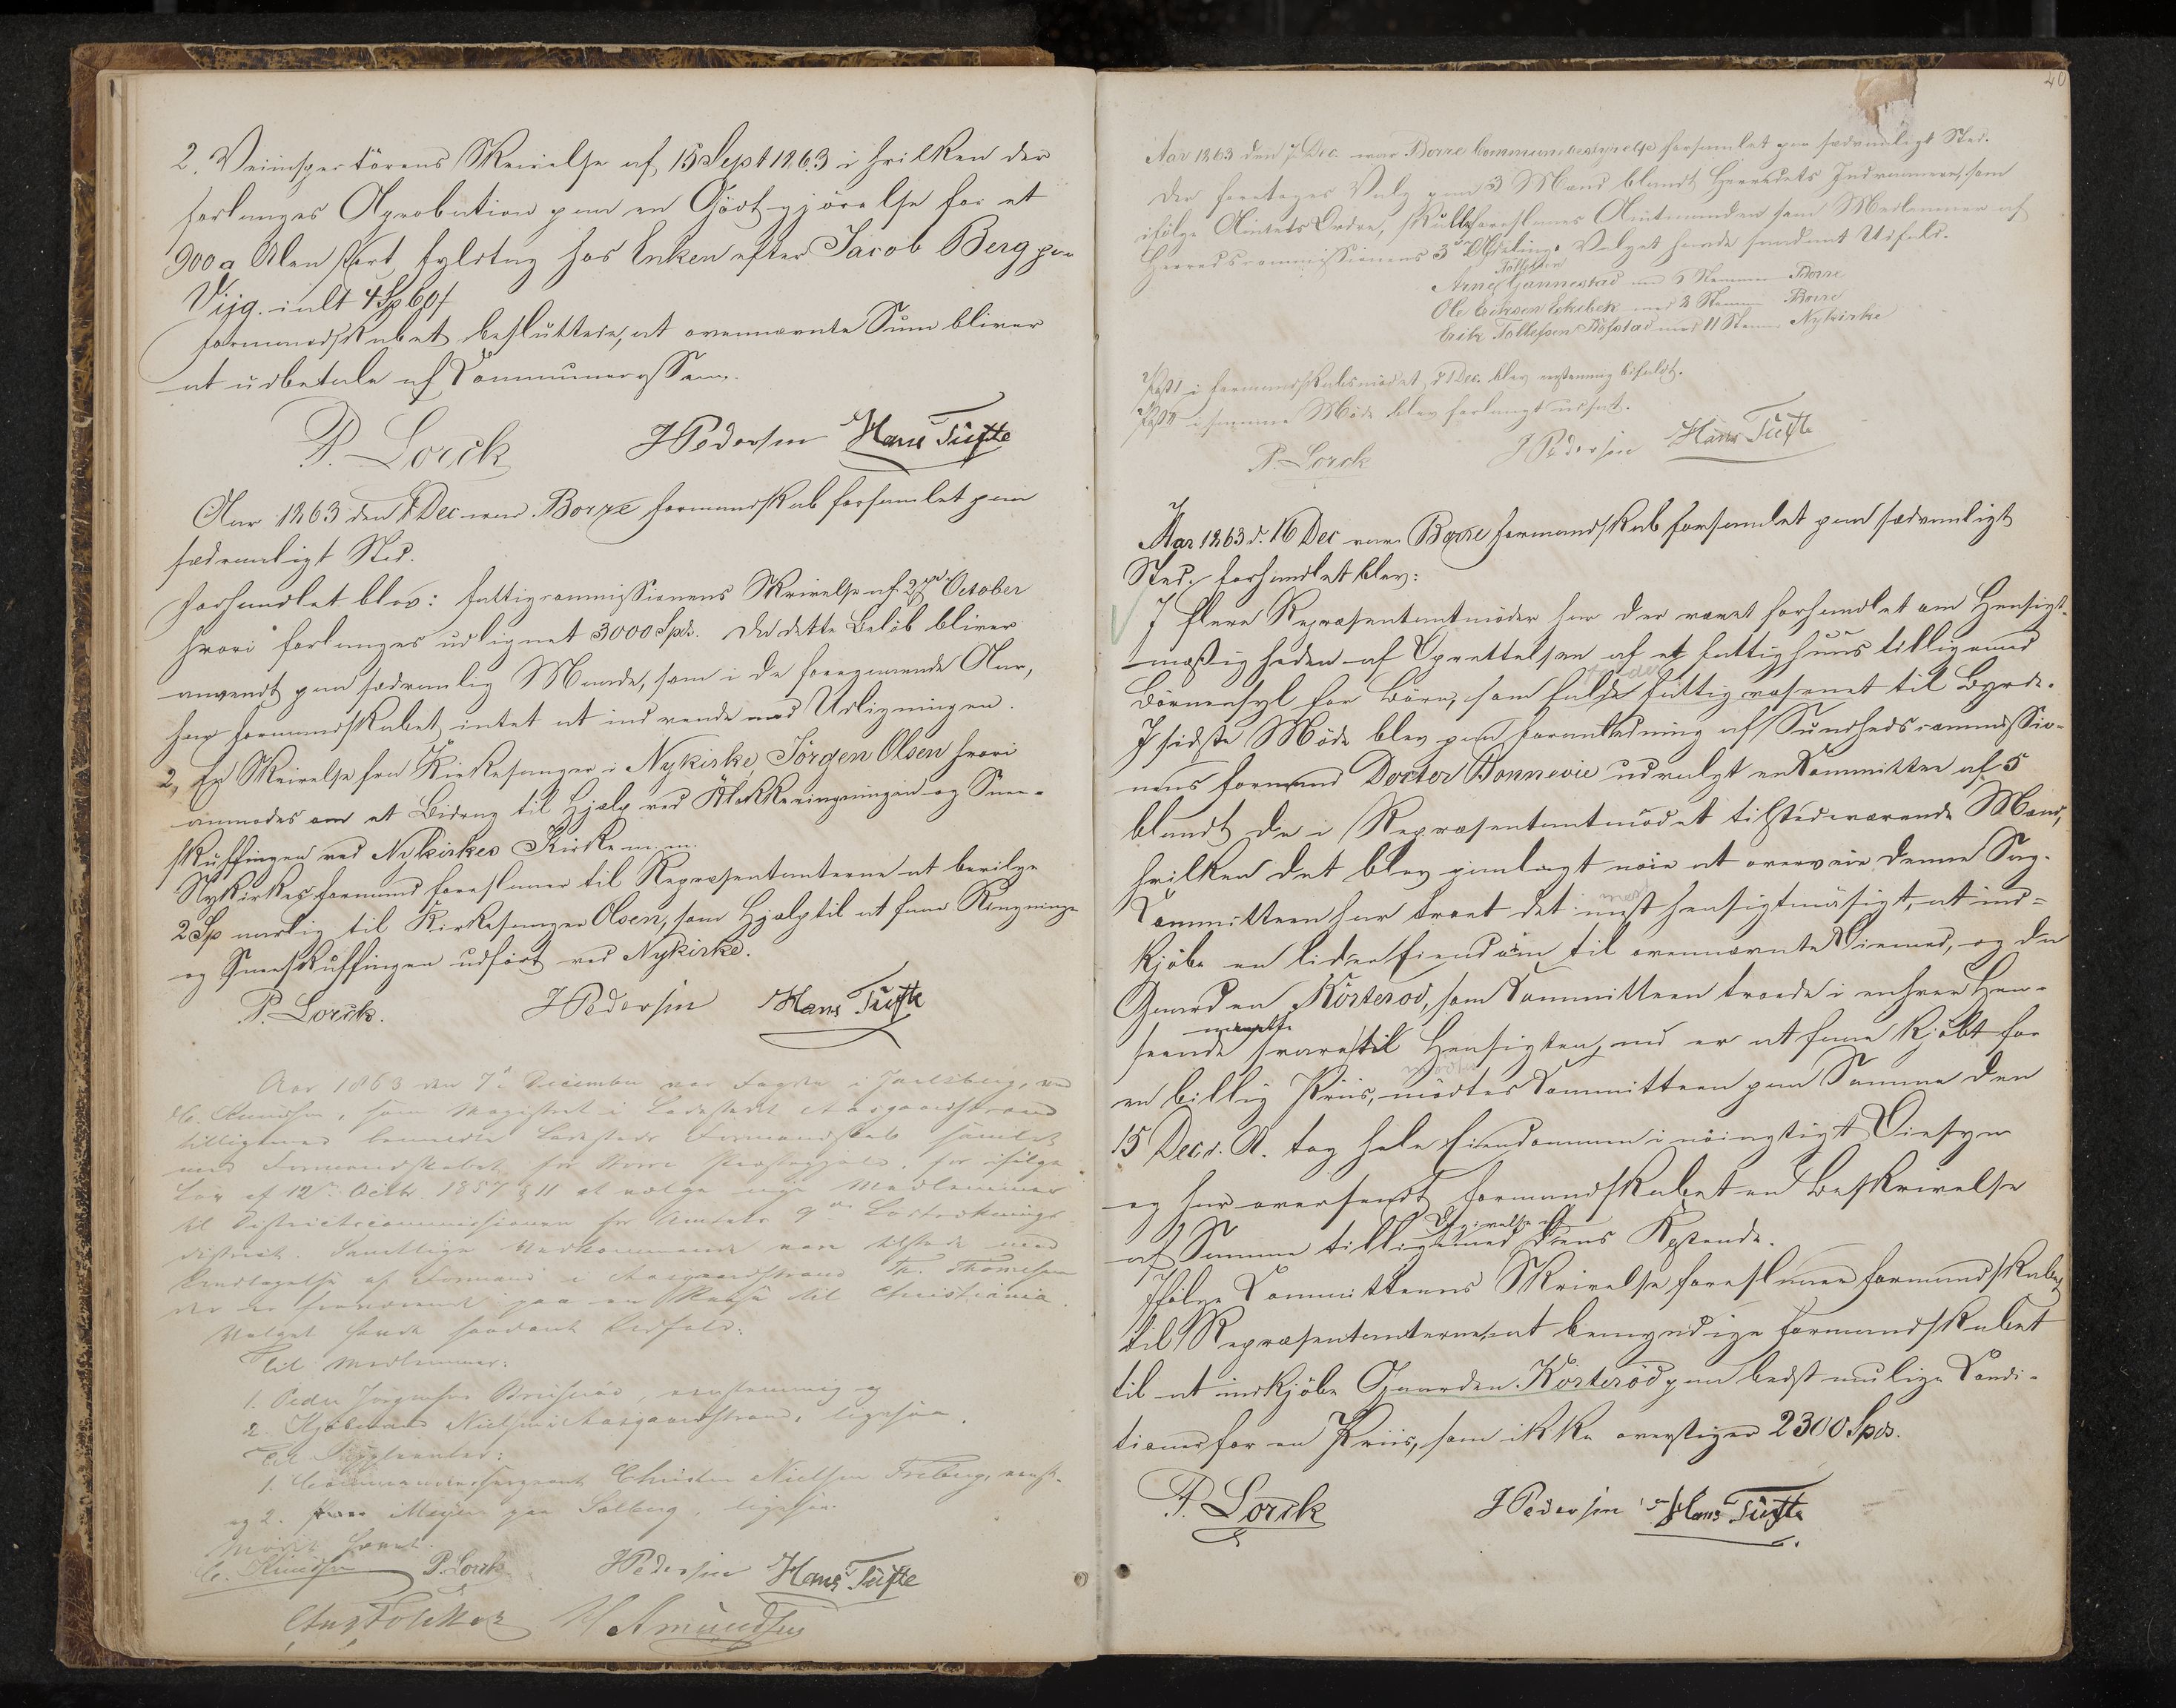 2. Veiinspectörens Skrivelse af 15 Sept 1863 i hvilken der
forlanges Aprobation paa en Godtgjörelse for et
900 a Alen stort Fyldtag hos Enken efter Jacob Berg paa
Viig. ialt 4 Sp 60 f
Formandskabet besluttede, at ovennævnte Sum bliver
at udbetale af Communecassen.
P. Lorck JPedersen Hans Tufte
Aar 1863 den 7 Dec. var Borre Formandskab forsamlet paa
sædvanligt Sted.
Forhandlet blev: Fattigcommissionens Skrivelse af October
hvori forlanges udlignet 3000 Spd. Da dette Beløb bliver
anvendt paa sædvanlig Maade, som i de foregaaende Aar,
har Formandskabet intet at indvende mod Udligningen.
2, En Skrivelse fra Kirkesanger i Nykirke Jörgen Olsen hvori
anmodes om et Bidrag til Hjælp ved Klokkeringningen og Snee-
skuffingen ved Nykirkes Kirke m. m.
Nykirkes Formand foreslaaer til Repræsentanterne at bevilge
2 Sp aarlig til Kirkesanger Olsen, som Hjælp til at faae Ringninge
og Sneeskuffingen udført ved Nykirke.
P. Lorck. JPedersen Hans Tufte
Aar 1863 den 7de December var Fogden i Jarlsberg,
C. Knudsen, som Magistrat i Ladestedet Aasgaardstrand
tilligemed bemeldte Ladesteds Formandskab samlet
med Formandskabet for Borre Præstegjeld, for ifølge
Lov af 12te Octbr. 1857 § 11 at vælge nye Medlemmer
til Districtscommissionen for Amtets 9de Lodstrækning
district. Samtlige Vedkommende vare tilstede med
Undtagelse af Formand i Aasgaardstrand Th. Thomesen
der er fraværende paa en Reise til Christiania.
Valget havde saadant Udfald:
Til Medlemmer:
1. Peder Jörgensen, eenstemmig og
2. Kjøbmand Nielsen i Aasgaardstrand, ligesaa.
Til Suppleanter:
1. Commandeersergeant Christen Nielsen Freberg, eenst.
og 2. Meyer paa Solberg, ligesaa.
Mødet hævet.
C. Knudsen P. Lorck JPedersen Hans Tufte
H Amundsen
40
Aar 1863 den 7 Dec. var Borre Communebestyrelse forsamlet paa sædvanligt Sted.
Der foretages Valg paa 3 Mænd blandt Herredets Indvaanere, som
ifölge Amtets Ordre, skulle foreslaaes Amtmanden som Medlemmer af
Herredscommissionens 3de Afdeling. Valget havde saadant Udfald.
Tollefsen
Arne Gannestad med 6 Stemmer Borre
Ole Eriksen Ekebek med 8 Stemmer Borre
Erik Tollefsen med 11 Stem. Nykirke
Post 1 i Formandskabsmødet d 7 Dec. blev eenstemmig bifaldt.
Post 2 i samme Møde blev forlangt udsat.
P. Lorck JPedersen Hans Tufte
Aar 1863 d. 16 Dec var Borre Formandskab forsamlet paa sædvanligt
Sted. Forhandlet blev:
I flere Repræsentantmöder har der været forhandlet om Hensigt-
mæssigheden af Oprettelsen af et Fattighuus tilligemed
Börneasyl for Börn, som falde Fattigvæsenet til Byrde.
I sidste Möde blev paa Foranledning af Sundhedscommissio-
nens Formand Doctor Bonnevie udvalgt en Committee af 5
blandt de i Repræsentantmödet tilstedeværende Mænd,
hvilken det blev paalagt nöie at overveie denne Sag.
mest
Committeen har troet det mest hensigtmæsigt, at ind-
kjöbe en liden Eiendom til ovennævnte Öiemed, og da
Gaarden Körteröd, som Committeen troede i enhver Hen-
seende svarer til Hensigten, nu er at faae kjöbt for
en billig Priis, mödtes Committeen paa Samme den
15 Dec. d. A. tog hele Eiendommen i nöiagtigt Öiesyn
og har oversendt Formandskabet en Beskrivelse
Opgivelse af
af Samme tilligemed dens Kostende.
Ifölge Committeens Skrivelse foreslaaer Formandskabet
til Repræsentanterne, at bemyndige Formandskabet
til at indkjöbe Gaarden Körteröd paa bedst mulige Condi-
tioner for en Priis, som ikke overstiger 2300 Spd.
P. Lorck JPedersen Hans Tufte